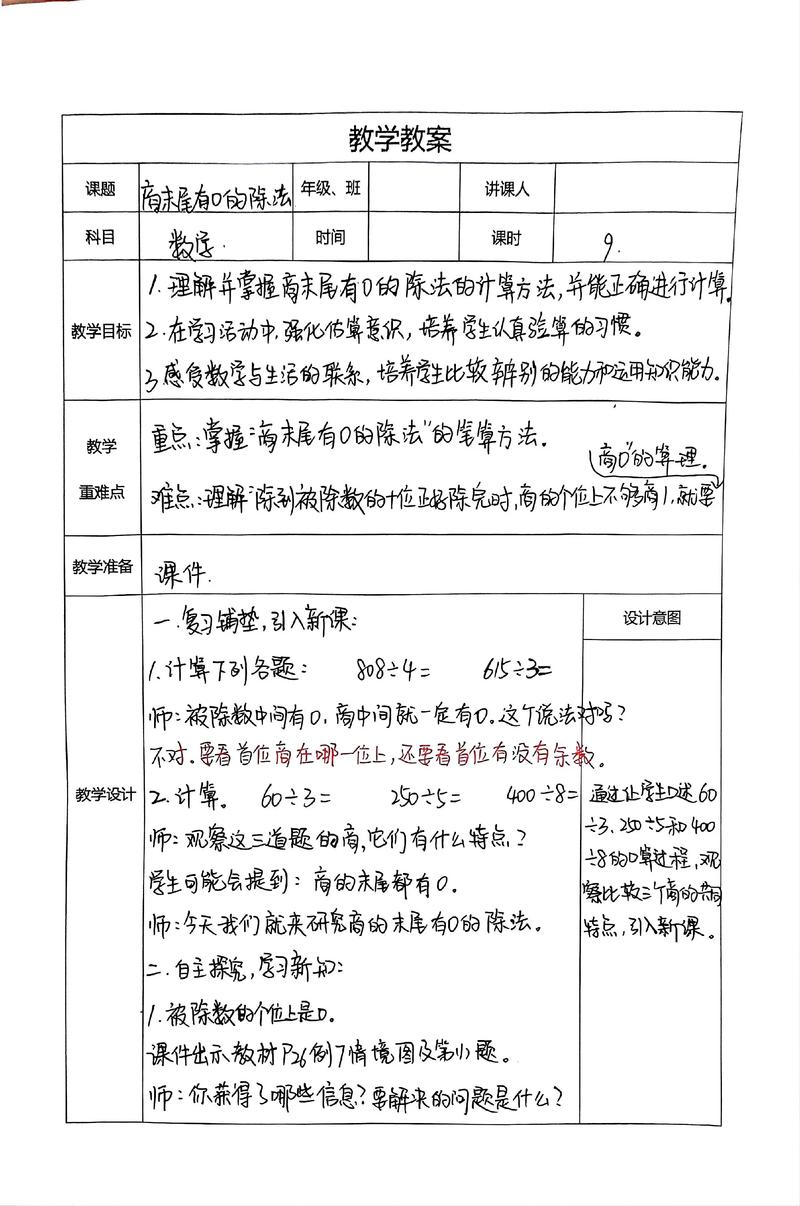 教学教案
课题 商末尾有0的除法 年级、班 讲课人
科目 数学. 时间 课时 9.
教学目标
1.理解并掌握商末尾有0的除法的计算方法,并能正确进行计算。
2.在学习活动中,强化估算意识,培养学生认真验算的习惯。
3感受数学与生活的联系,培养学生比较辨别的能力和运用知识能力。
教学
重难点
重点:掌握“商末尾有0的除法”的笔算方法.
难点:理解“除到被除数的十位正好除完时,商的个位上不够商1,就要
商0”的算理.
教学准备 课件.
教学设计
一.复习铺垫,引入新课:
1.计算下列各题: 808÷4= 615÷3=
师:被除数中间有0,商中间就一定有0。这个说法对吗?
不对.要看首位商在哪一位上,还要看首位有没有余数。
2.计算。 60÷3= 250÷5= 400÷8=
师:观察这三道题的商,它们有什么特点?
学生可能会提到:商的末尾都有0.
师:今天我们就来研究商的末尾有0的除法。
二.自主探究,学习新知:
1.被除数的个位上是0.
课件出示教材P26例7情境图及第(1)题。
师:你获得了哪些信息?要解决的问题是什么?
设计意图
通过让学生口述60
÷3、250÷5和400
÷8的口算过程,观
察比较三个商的共同
特点,引入新课。